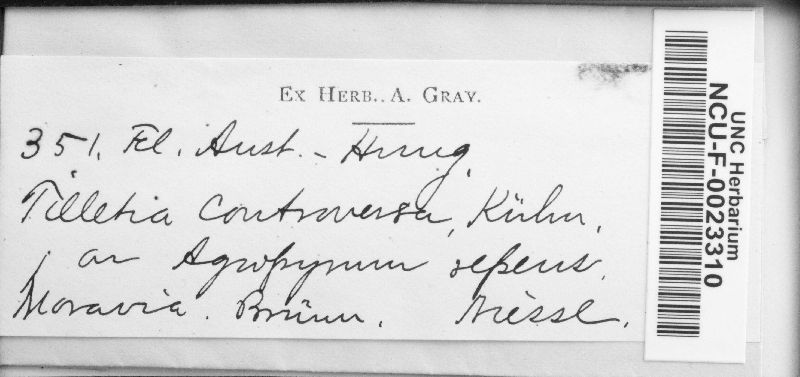 Ex Herb. A. Gray.
351. Fl. Aust. - Hung.
Tilletia controversa, Kühn,
on Agropyrum repens.
Moravia. Brünn. Niessl.
UNC Herbarium
NCU-F-0023310